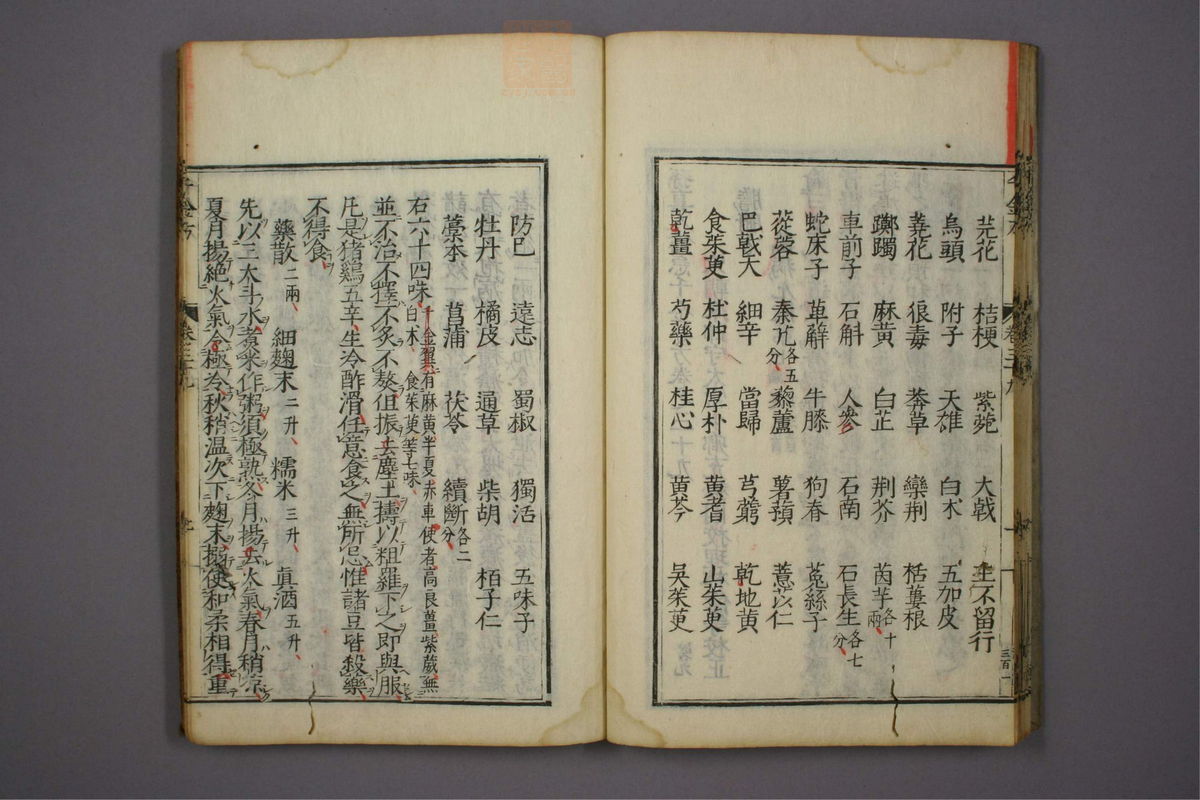 芫花 桔梗 紫菀 大戟 王不留行
烏頭 附子 天雄 白朮 五加皮
蕘花 狼毒 莽草 欒荆 栝蔞根
躑躅 麻黃 白芷 荆芥 茵芋各十兩
車前子 石斛 人參 石南 石長生各七分
蛇床子 萆薢 牛膝 狗脊 菟絲子
蓯蓉 秦艽各五分 藜蘆 薯蕷 薏苡仁
巴戟天 細辛 當歸 芎藭 乾地黃
食茱萸 杜仲 厚朴 黃耆 山茱萸
乾薑 芍藥 桂心 黃芩 吳茱萸
防巳 遠志 蜀椒 獨活 五味子
牡丹 橘皮 通草 柴胡 栢子仁
藁本 菖蒲 茯苓 續斷各二分
右六十四味千金翼有麻黃半夏赤車使者高良薑紫葳無白朮食茱萸等七味
並不治不擇不炙不熬但振去塵土擣以粗羅下之即與服
凡是猪鷄五辛生冷酢滑任意食之無所忌惟諸豆皆殺藥
不得食
藥散二兩 細麴末二升 糯米三升 真酒五升
先以三大斗水煮米作粥須極熟冬月揚去火氣春月稍凉
夏月揚絕火氣令極冷秋稍溫次下麴末搦使和柔相得重
卷三十九